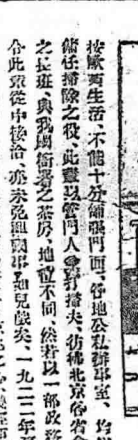 按歐西生活、不能十分鋪張門面、各地公私辦事室、
備任掃除之役、此輩以管門人兼打掃夫、彷彿北京各省會
之長班、與我國衙署之茶房、地位不同、然若以一部政務
令此輩從中接洽、亦未免組織事如兒戲矣、一九二二年